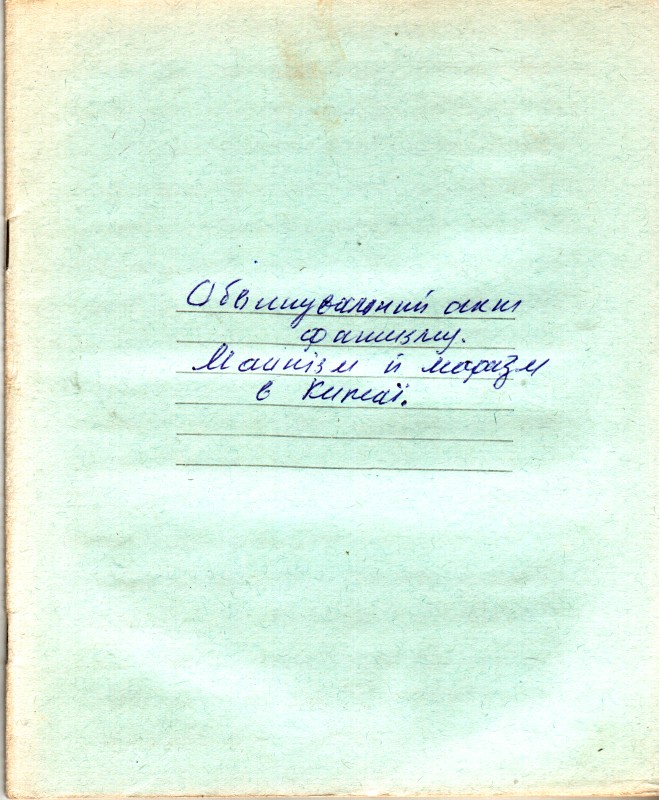 Обвинувальний акт
фашизму.
Маоїзм й маразм
в Китаї.